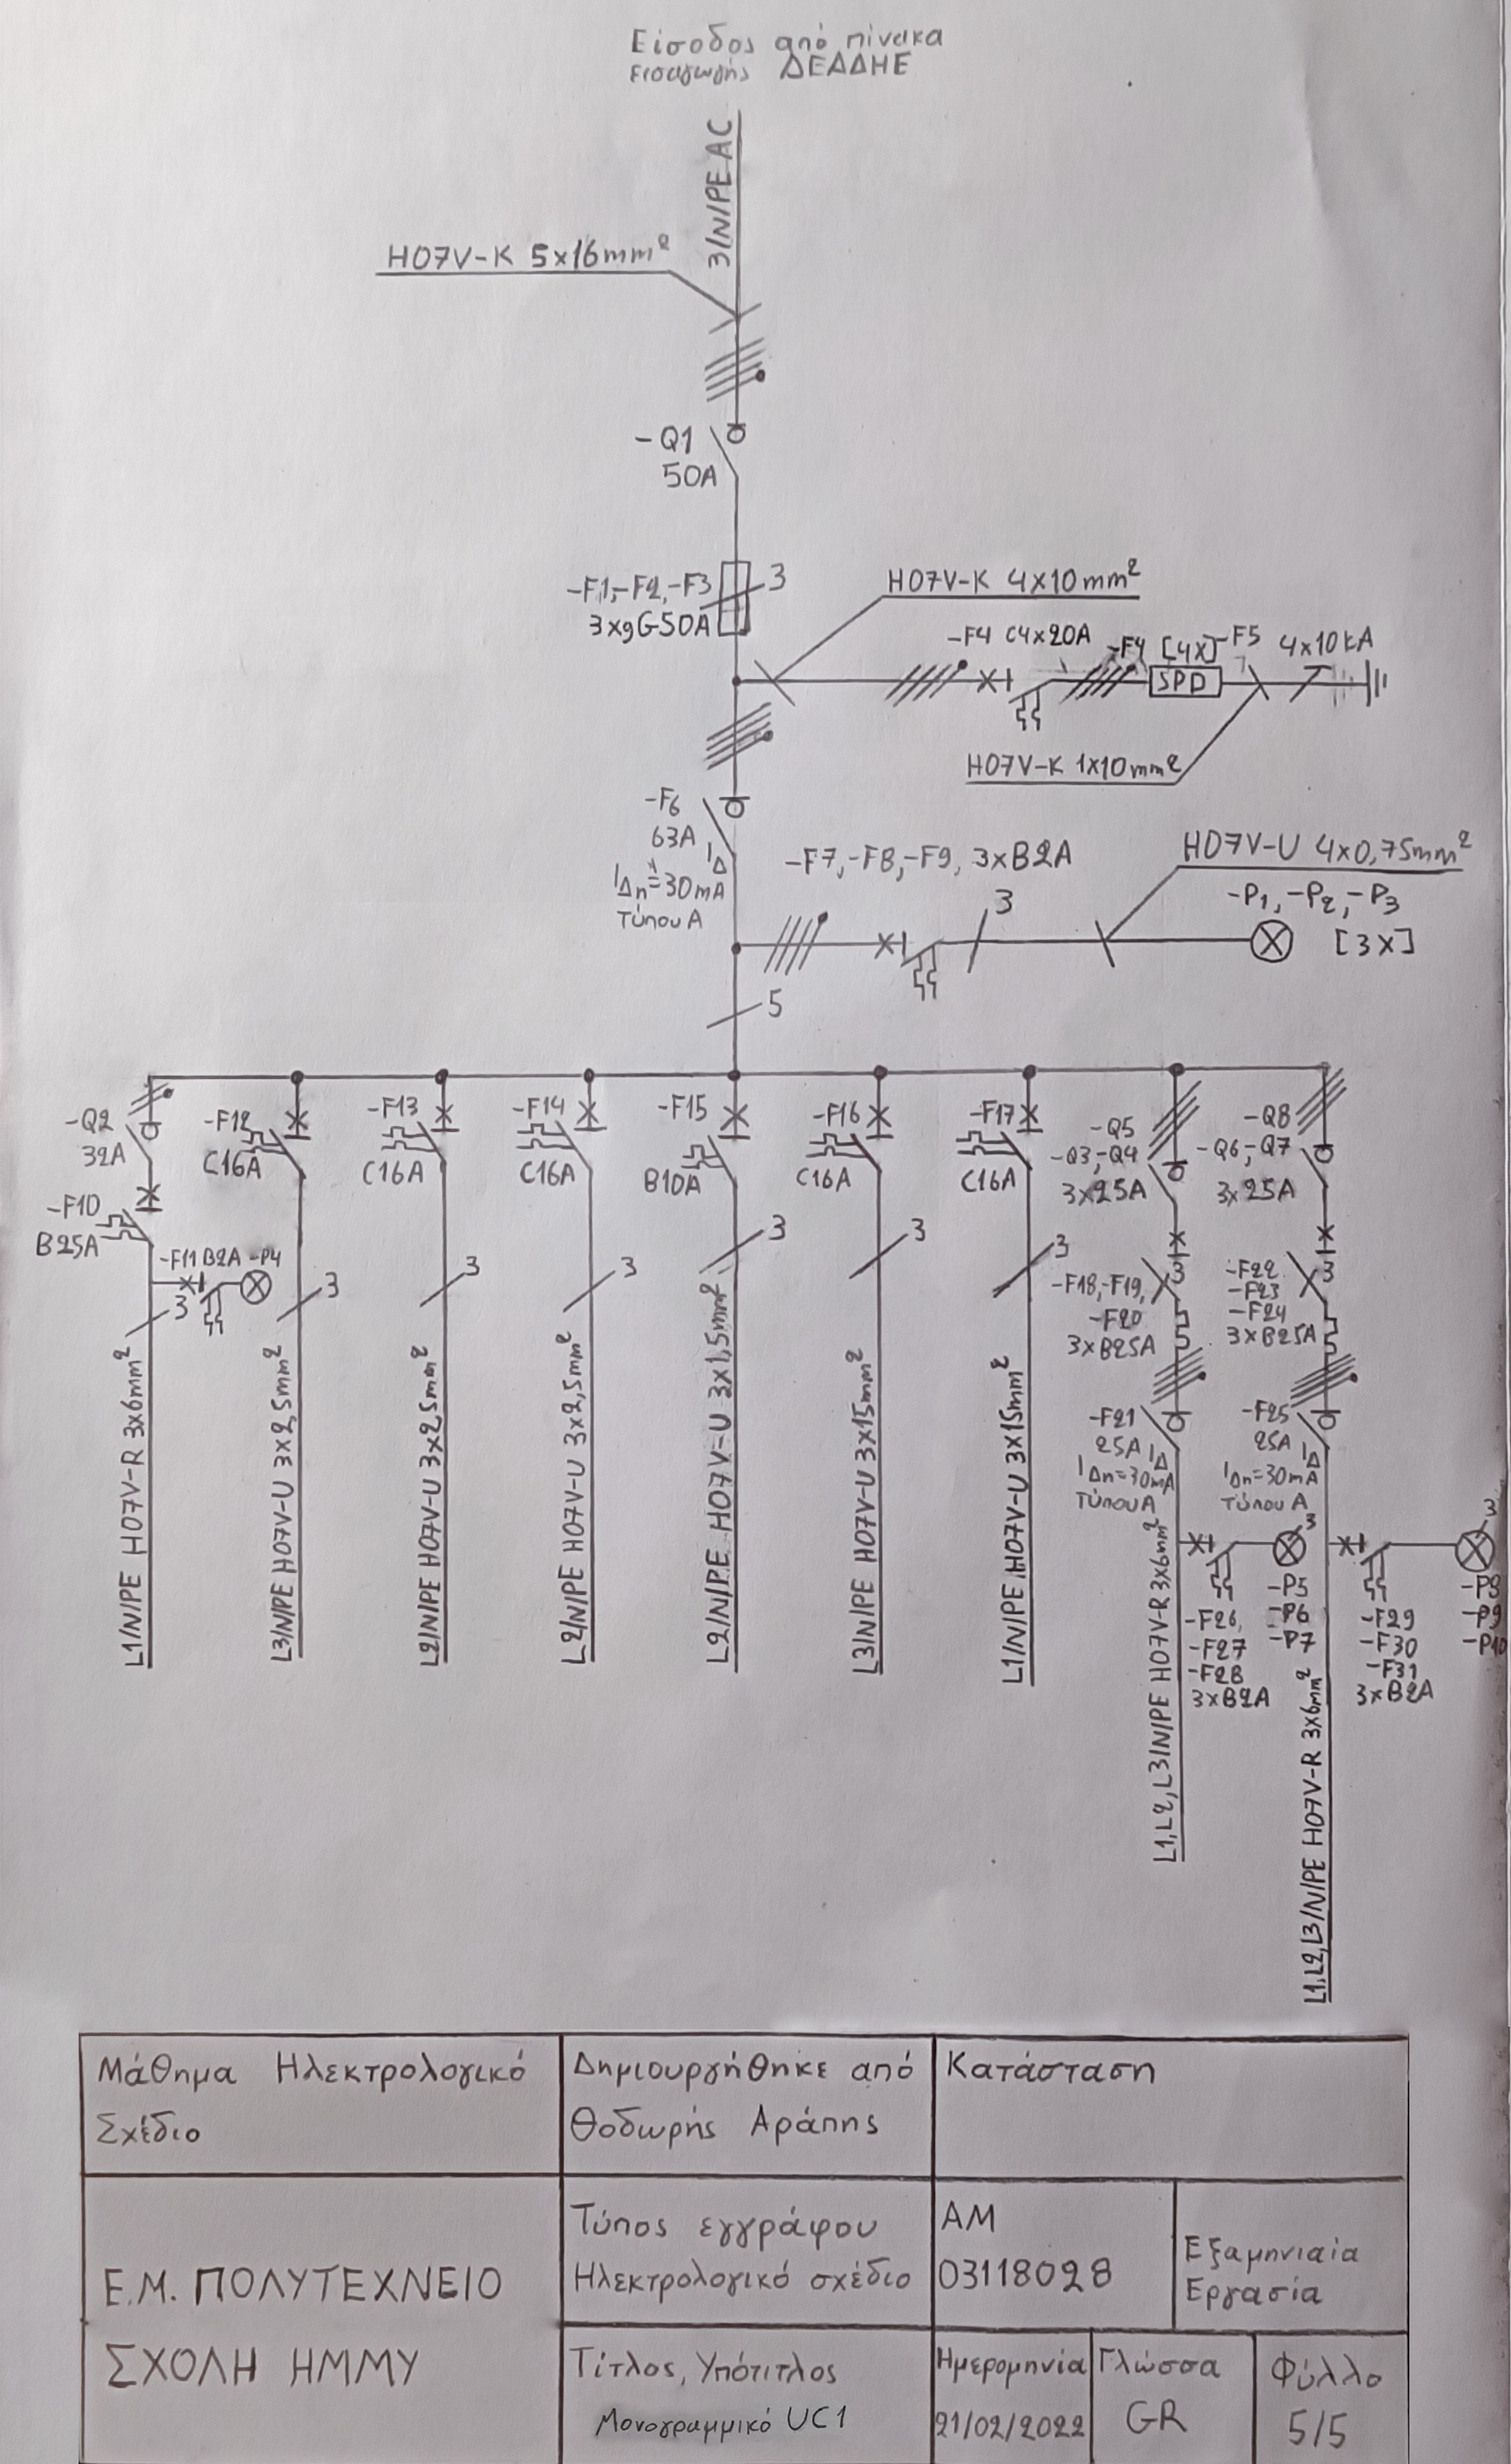 Είσοδος από πίνακα
εισαγωγής ΔΕΔΔΗΕ
3/N/PE AC
H07V-K 5x16mm²
-Q1
50A
-F1,-F2,-F3
3xgG50A
3
H07V-K 4x10mm²
-F4 C4x20A
[4x]
-F5
4x10kA
SPD
H07V-K 1x10mm²
-F6
63A
IΔ
IΔn=30mA
Τύπου Α
-F7,-F8,-F9, 3xB2A
3
H07V-U 4x0,75mm²
-P1,-P2,-P3
[3x]
5
-Q2
32A
-F10
B25A
-F11 B2A -P4
3
L1/N/PE H07V-R 3x6mm²
-F12
C16A
3
L3/N/PE H07V-U 3x2,5mm²
-F13
C16A
3
L2/N/PE H07V-U 3x2,5mm²
-F14
C16A
3
L2/N/PE H07V-U 3x2,5mm²
-F15
B10A
3
L2/N/PE H07V-U 3x1,5mm²
-F16
C16A
3
L3/N/PE H07V-U 3x15mm²
-F17
C16A
3
L1/N/PE H07V-U 3x15mm²
-Q5
-Q3,-Q4
3x25A
3
-F18,-F19,
-F20
3xB25A
-F21
25A
IΔ
IΔn=30mA
Τύπου Α
L1,L2,L3/N/PE H07V-R 3x6mm²
3
-P5
-P6
-P7
-F26,
-F27
-F28
3xB2A
-Q8
-Q6,-Q7
3x25A
3
-F22
-F23
-F24
3xB25A
-F25
25A
IΔ
IΔn=30mA
Τύπου Α
L1,L2,L3/N/PE H07V-R 3x6mm²
3
-P8
-P9
-P10
-F29
-F30
-F31
3xB2A
Μάθημα Ηλεκτρολογικό
Σχέδιο
Δημιουργήθηκε από
Θοδωρής Αράπης
Κατάσταση
Ε.Μ. ΠΟΛΥΤΕΧΝΕΙΟ
ΣΧΟΛΗ ΗΜΜΥ
Τύπος εγγράφου
Ηλεκτρολογικό σχέδιο
ΑΜ
03118028
Εξαμηνιαία
Εργασία
Τίτλος, Υπότιτλος
Μονογραμμικό UC1
Ημερομηνία
21/02/2022
Γλώσσα
GR
Φύλλο
5/5